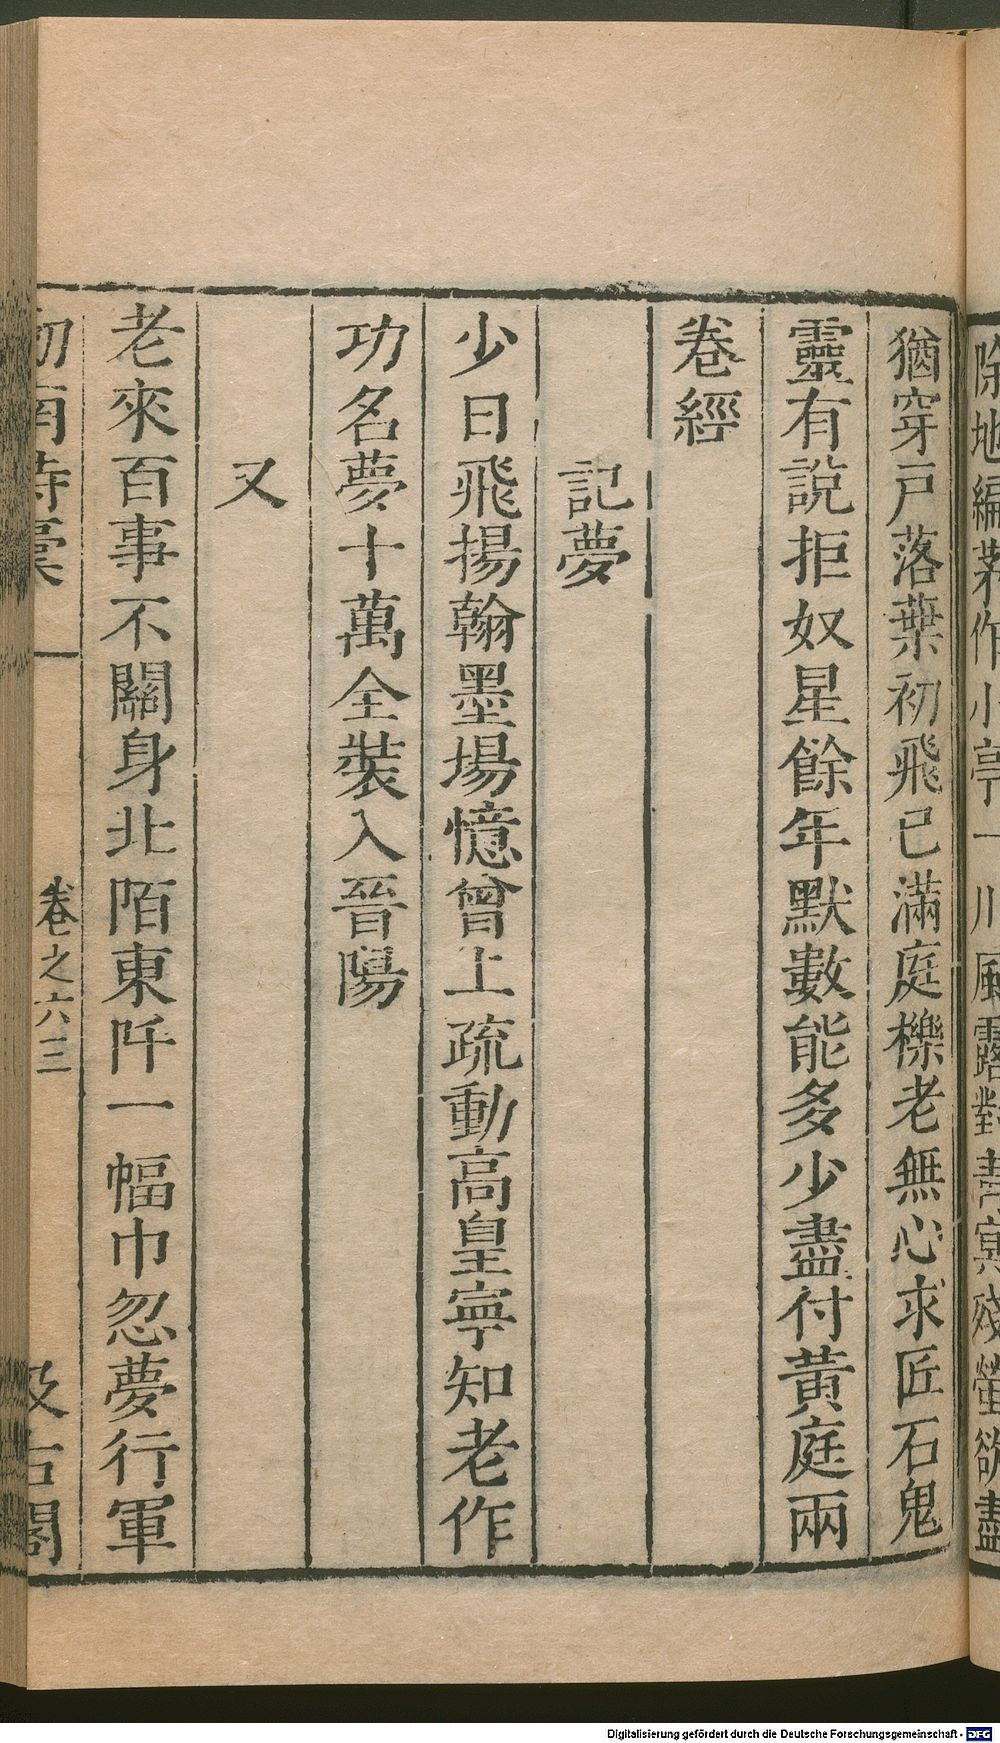 除地編茅作小亭一川風露對青冥殘螢欲盡
猶穿戸落葉初飛已滿庭櫟老無心求匠石鬼
靈有說拒奴星餘年默數能多少盡付黄庭兩
卷經
記夢
少日飛揚翰墨場憶曾上疏動高皇寧知老作
功名夢十萬全裝入晉陽
又
老來百事不關身北陌東阡一幅巾忽夢行軍
劒南詩稾 卷之六三 汲古閣
Digitalisierung gefördert durch die Deutsche Forschungsgemeinschaft - DFG